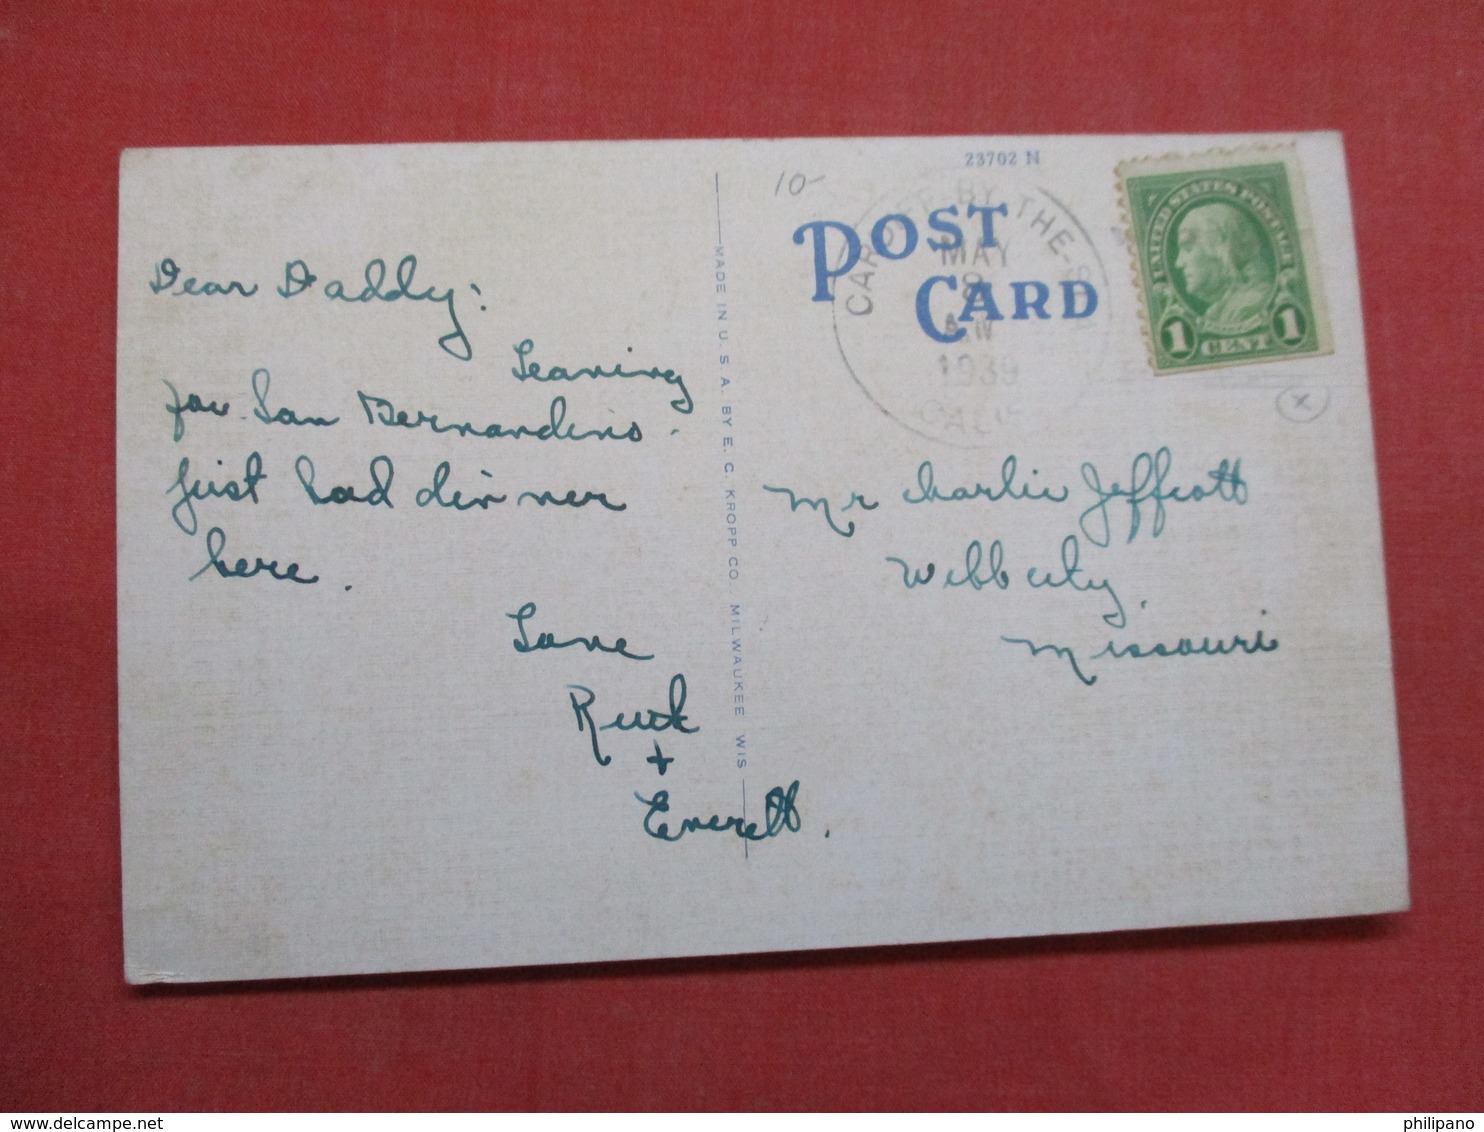 23702 N
10-
POST
CARD
CARDIFF-BY-THE-SEA
MAY
8
AM
1939
CALIF
UNITED STATES POSTAGE
1 CENT 1
x
Dear Daddy:
Leaving
for San Bernardino.
Just had dinner
here.
Love
+
Everett.
MADE IN U. S. A. BY E. C. KROPP CO. MILWAUKEE WIS
Mr Charlie Jeffcott
Webb City,
Missouri
philipano